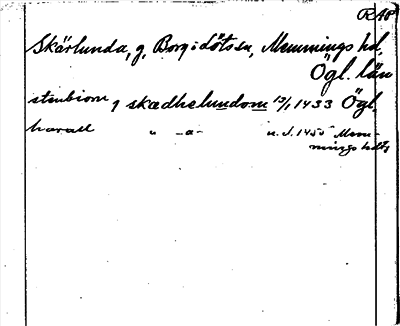 RAP
Skärlunda, g, Borg i dötssn, Memmings hd,
Ögl. län
stenbiorn j skædhelundom 13/1 1433 Ögl.
harall " -a- u.d. 1450 Mem-
mings hdtg